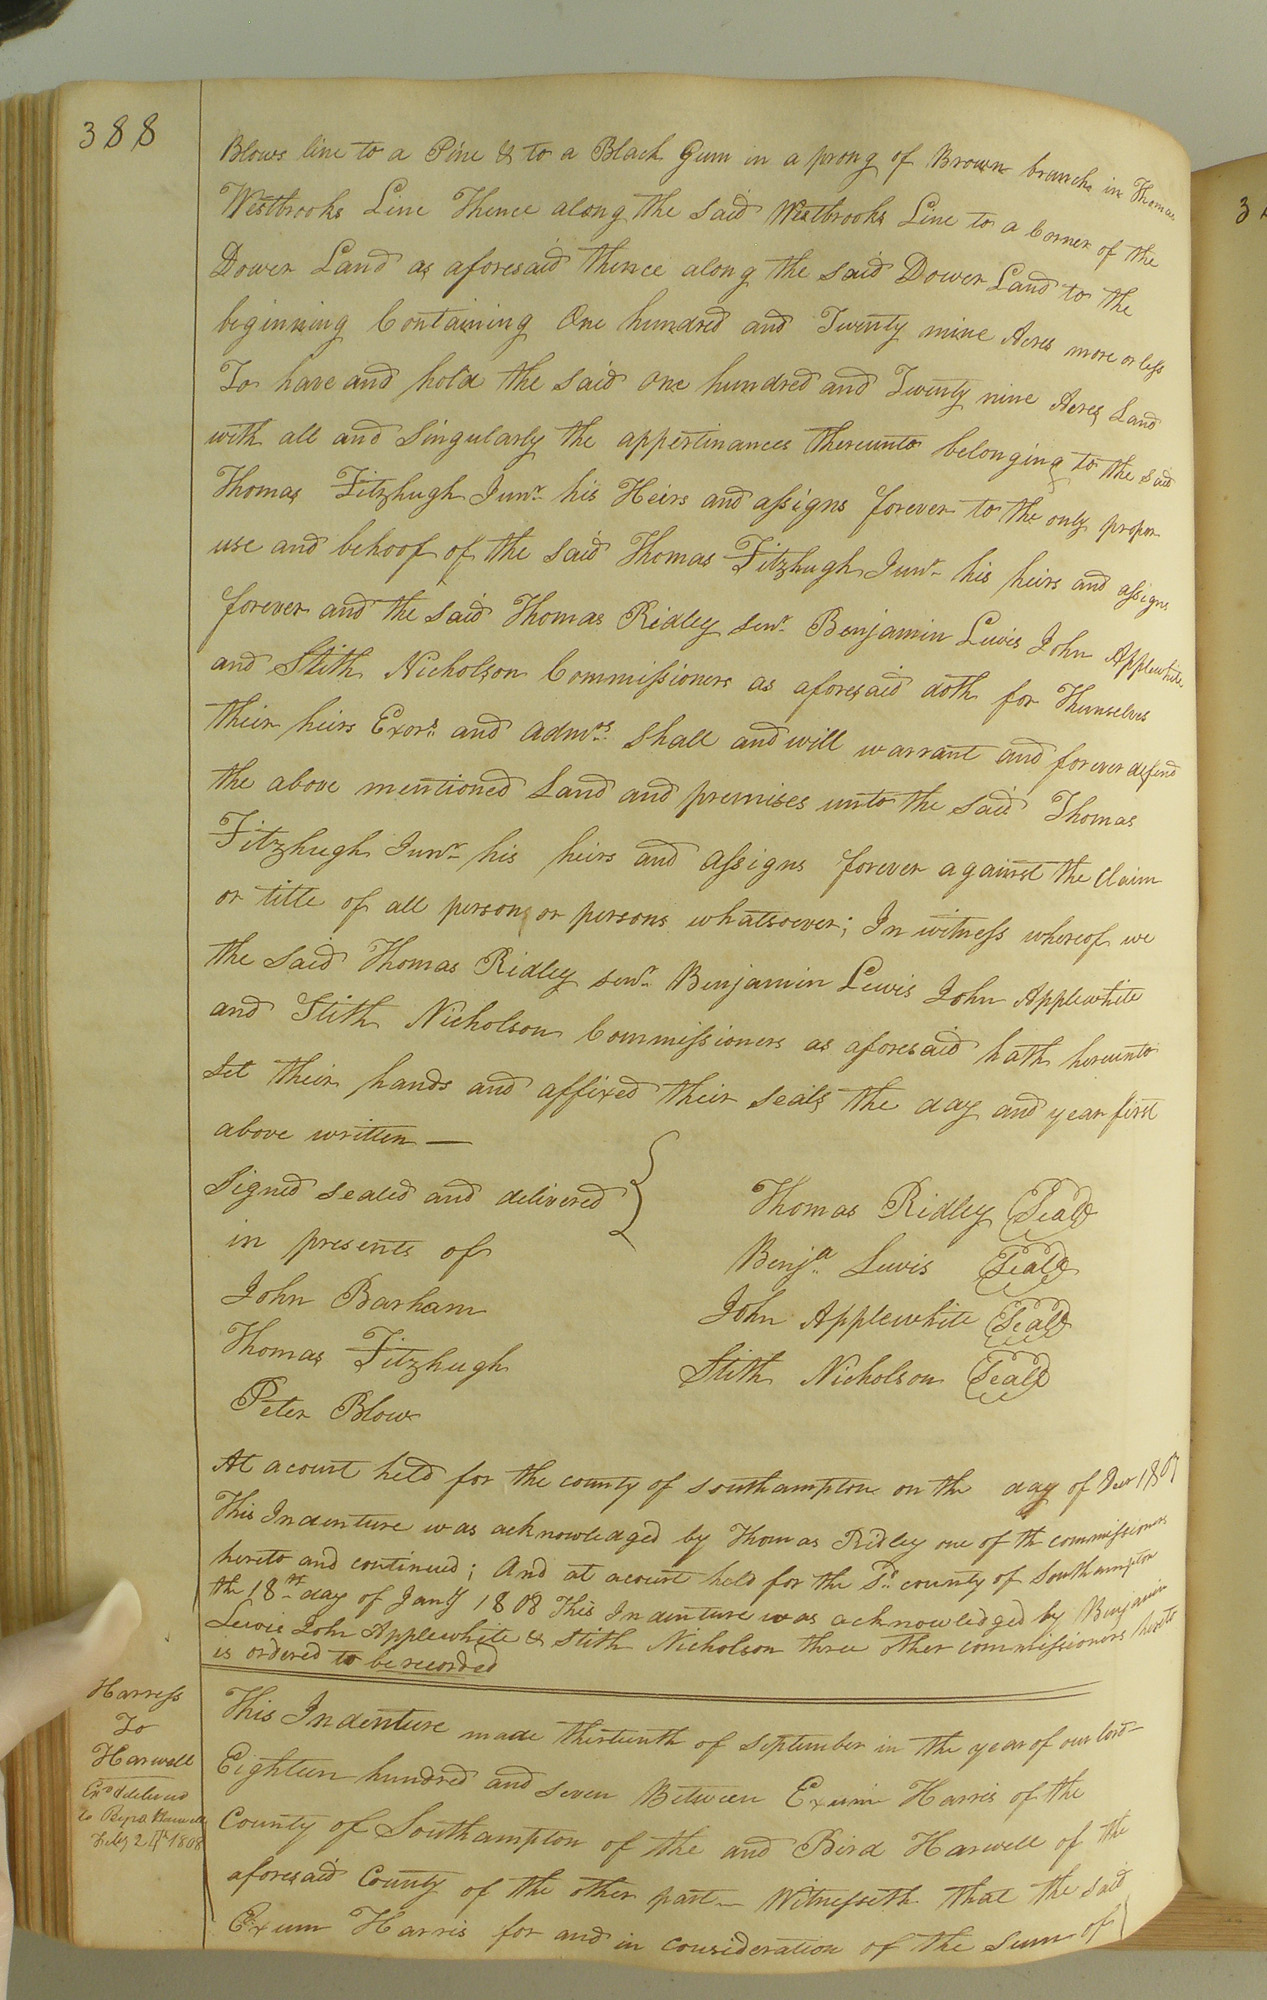 388
Blows line to a Pine & to a Black Gum in a prong of Brown branch in Thomas
Westbrooks Line Thence along the said Westbrooks Line to a Corner of the
Dower Land as aforesaid thence along the said Dower Land to the
beginning Containing One hundred and Twenty nine Acres more or less
To have and hold the said One hundred and Twenty nine Acres Land
with all and Singularly the appertinances thereunto belonging to the said
Thomas Fitzhugh Junr his Heirs and assigns forever to the only proper
use and behoof of the said Thomas Fitzhugh Junr his heirs and assigns
forever and the said Thomas Ridley senr Benjamin Lewis John Applewhite
and Stith Nicholson Commissioners as aforesaid doth for Themselves
their heirs Exors and admrs shall and will warrant and forever defend
the above mentioned Land and premises unto the said Thomas
Fitzhugh Junr his heirs and assigns forever against the Claim
or title of all persons or persons whatsoever; In witness whereof we
the said Thomas Ridley senr Benjamin Lewis John Applewhite
and Stith Nicholson Commissioners as aforesaid hath hereunto
set their hands and affixed their seals the day and year first
above written —
Signed sealed and delivered
in presents of
John Barham
Thomas Fitzhugh
Peter Blow
Thomas Ridley Seal
Benja Lewis Seal
John Applewhite Seal
Stith Nicholson Seal
At a court held for the county of Southampton on the day of Decr 1807
This Indenture was acknowledged by Thomas Ridley one of the commissioners
hereto and continued; And at a court held for the Sd county of Southampton
the 18th day of Jany 1808 This Indenture was acknowledged by Benjamin
Lewis John Applewhite & Stith Nicholson three other commissioners hereto
is ordered to be recorded
Harress
To
Harwell
Exd delivered
to Harwell
Feby 24th 1808
This Indenture made thirteenth of September in the year of our lord
Eighteen hundred and seven Between Exum Harris of the
County of Southampton of the and Bird Harwell of the
aforesaid County of the other part — Witnesseth that the said
Exum Harris for and in consideration of the Sum of